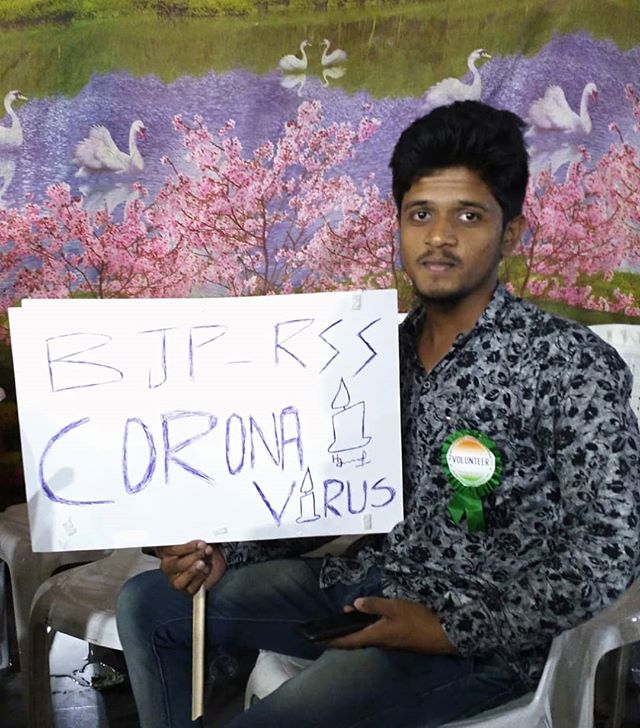 BJP-RSS
CORONA
VIRUS
VOLUNTEER